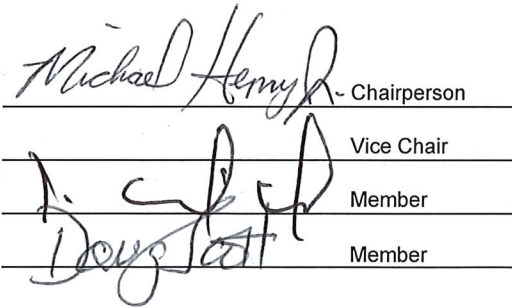 Michael Henry Jr. Chairperson
Vice Chair
Member
Doug Scott Member